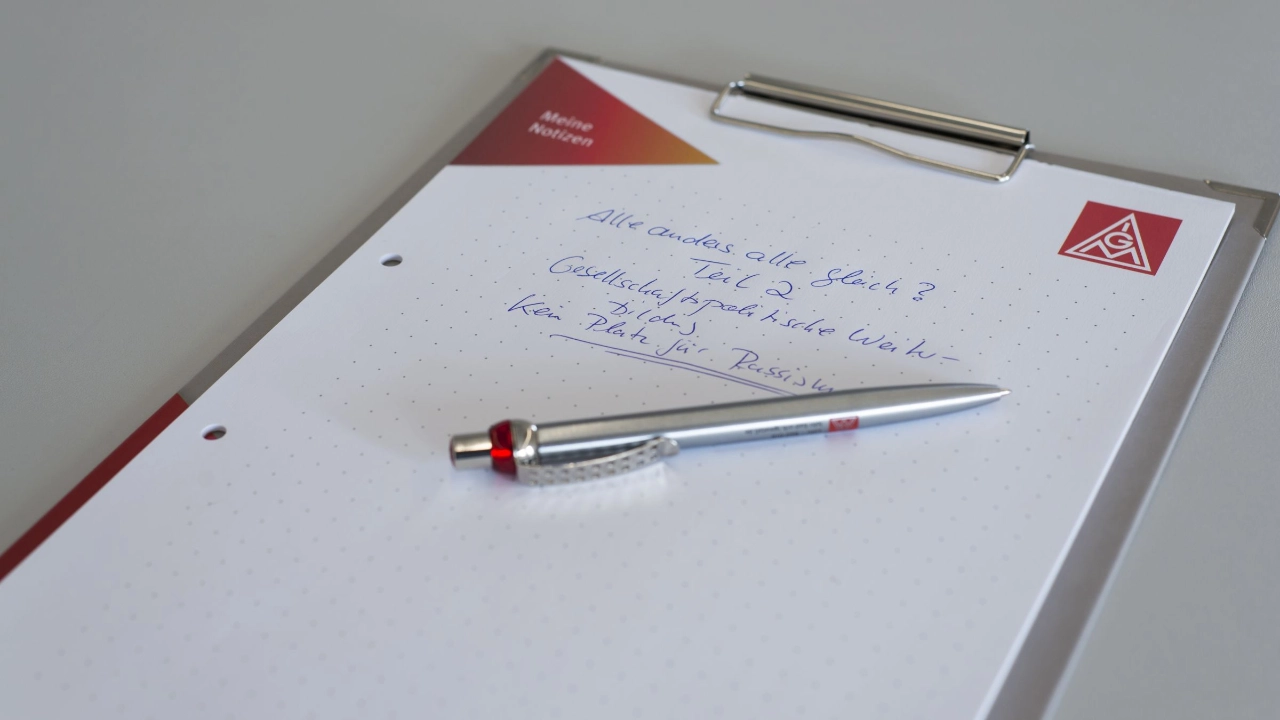 Meine
Notizen
IGM
Alle anders alle gleich?
Teil 2
Gesellschaftspolitische Weiter-
bildung
Kein Platz für Rassismu